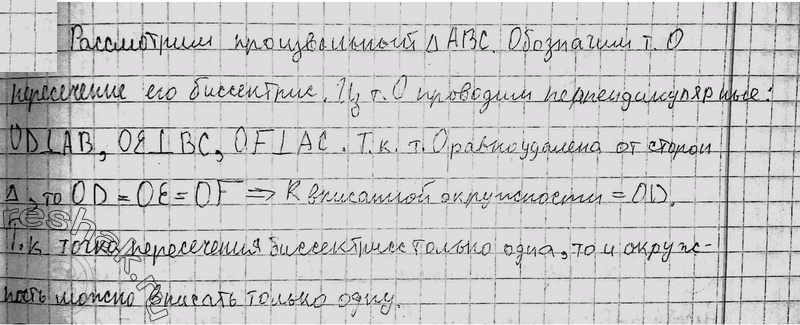 Рассмотрим произвольный Δ ABC. Обозначим т. O
пересечение его биссектрис. Из т. O проводим перпендикулярные:
OD⊥AB, OE⊥BC, OF⊥AC. Т.к. т. O равноудалена от сторон
Δ, то OD = OE = OF ⇒ R вписанной окружности = OD.
Т.к. точка пересечения биссектрисс только одна, то и окруж-
ность можно вписать только одну.
reshak.ru